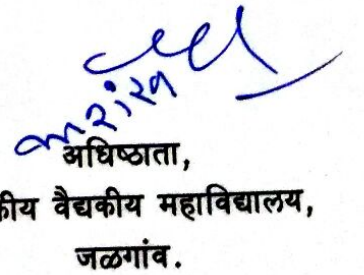 अधिष्ठाता,
कीय वैद्यकीय महाविद्यालय,
जळगांव.